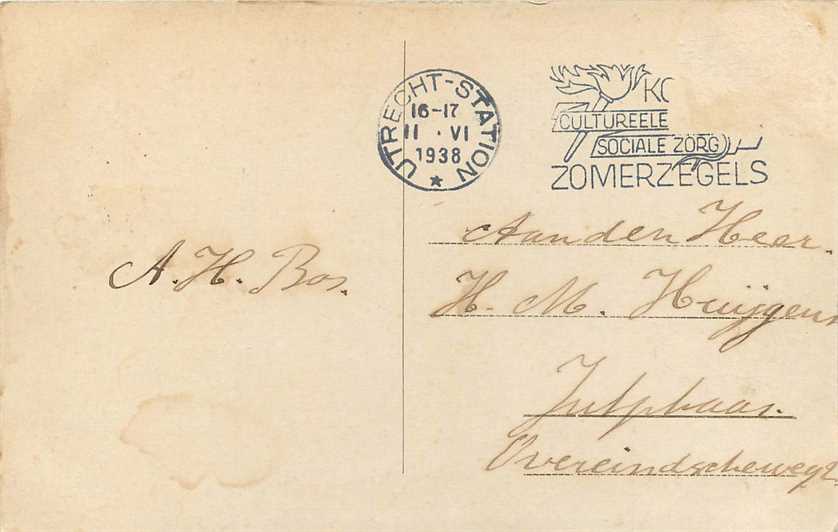 UTRECHT-STATION
16-17
11 . VI
1938
CULTUREELE
SOCIALE ZORG
ZOMERZEGELS
A. H. Bos.
Aan den Heer.
H. M. Huijgens
Jutphaas.
Overeindscheweg